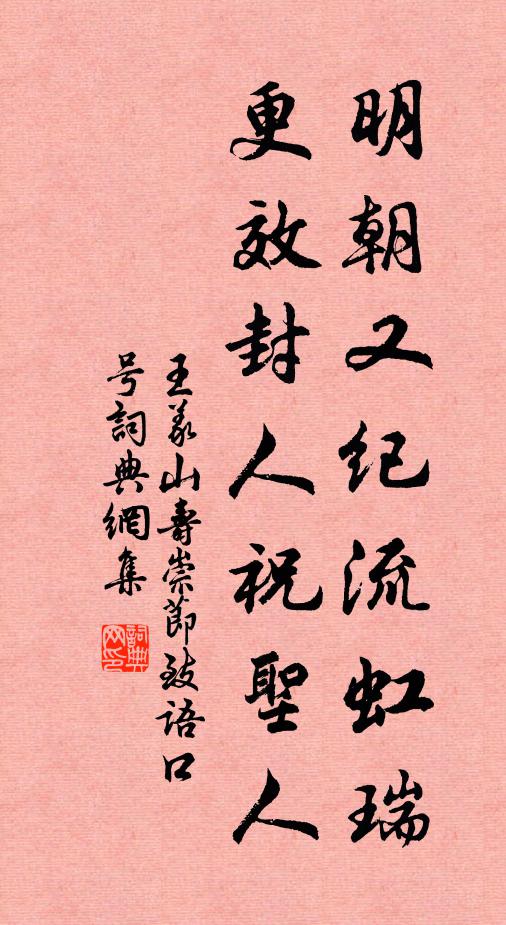 明朝又纪流虹瑞
更效封人祝聖人
王义山壽崇節致语口
号詞典網集
詞典网印